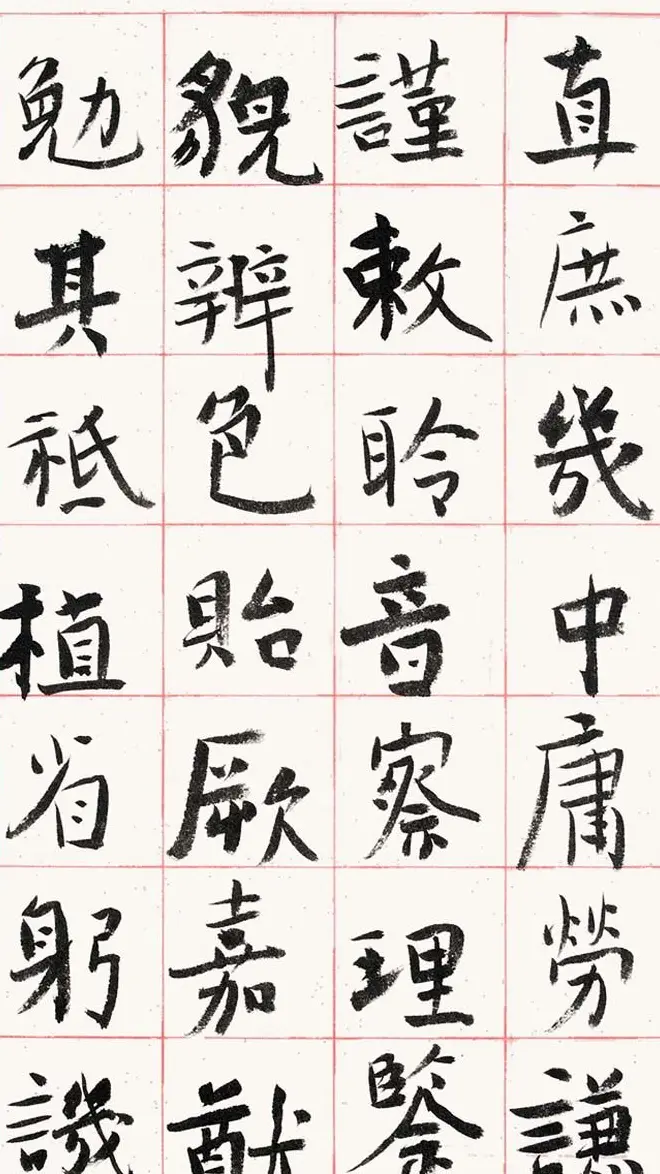 直庶幾中庸勞謙
謹敕聆音察理鑒
貌辨色貽厥嘉猷
勉其祗植省躬譏